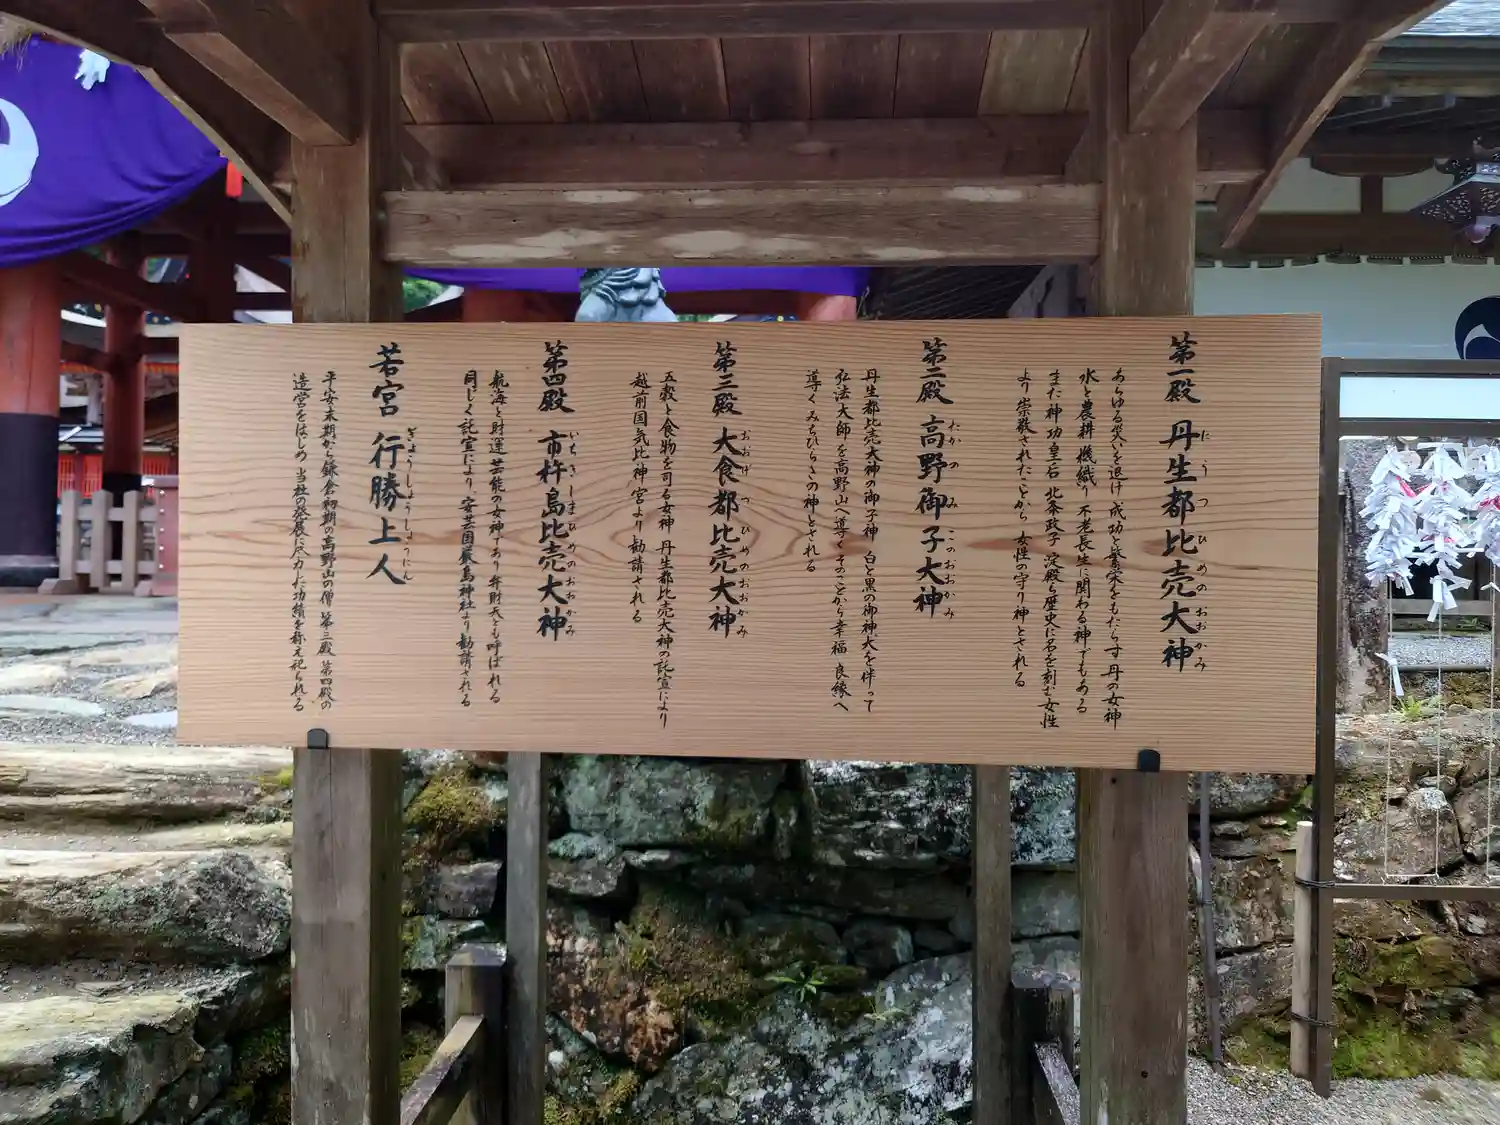 第一殿 丹生都比売大神
にうつひめのおおかみ
あらゆる災いを退け 成功と繁栄をもたらす 丹の女神
水と農耕 機織り 不老長生に関わる神でもある
また神功皇后 北条政子 淀殿ら歴史に名を刻む女性
より崇敬されたことから 女性の守り神とされる
第二殿 高野御子大神
たかのみこのおおかみ
丹生都比売大神の御子神 白と黒の御神犬を伴って
弘法大師を高野山へ導くそのことから幸福 良縁へ
導く みちひらきの神とされる
第三殿 大食都比売大神
おおげつひめのおおかみ
五穀と食物を司る女神 丹生都比売大神の託宣により
越前国気比神宮より勧請される
第四殿 市杵島比売大神
いちきしまひめのおおかみ
航海と財運 芸能の女神であり 弁財天とも呼ばれる
同じく託宣により 安芸国厳島神社より勧請される
若宮 行勝上人
ぎょうしょうしょうにん
平安末期から鎌倉初期の高野山の僧 第三殿 第四殿の
造営をはじめ 当社の発展に尽力した功績を称え祀られる